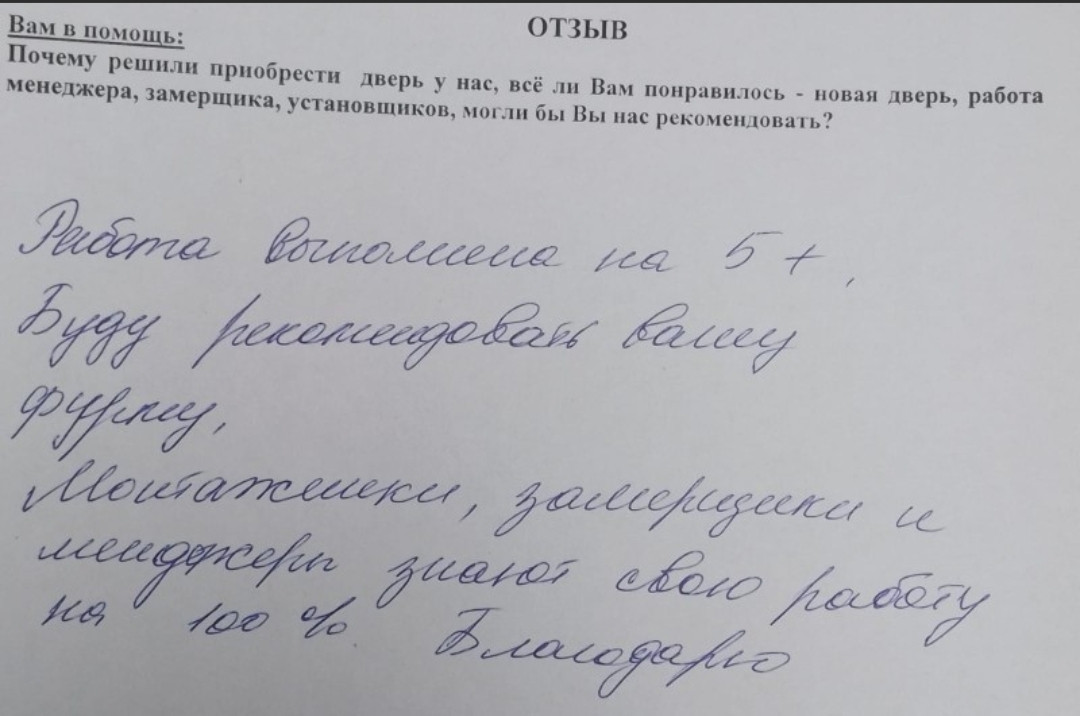 ОТЗЫВ
Вам в помощь:
Почему решили приобрести дверь у нас, всё ли Вам понравилось - новая дверь, работа
менеджера, замерщика, установщиков, могли бы Вы нас рекомендовать?
Работа выполнена на 5+.
Буду рекомендовать вашу
фирму,
Монтажники, замерщики и
менеджеры знают свою работу
на 100 %. Благодарю